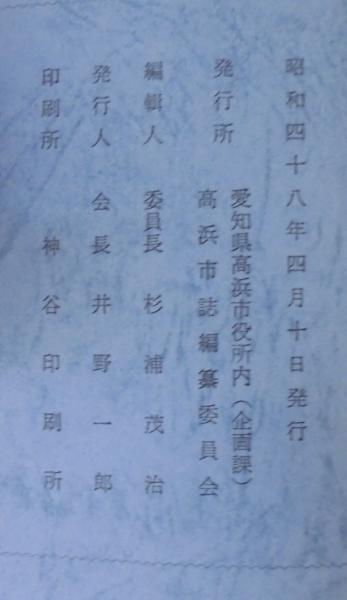 昭和四十八年四月十日発行
発行所
愛知県高浜市役所内(企画課)
高浜市誌編纂委員会
編輯人 委員長 杉浦茂治
発行人 会長 井野一郎
印刷所 神谷印刷所